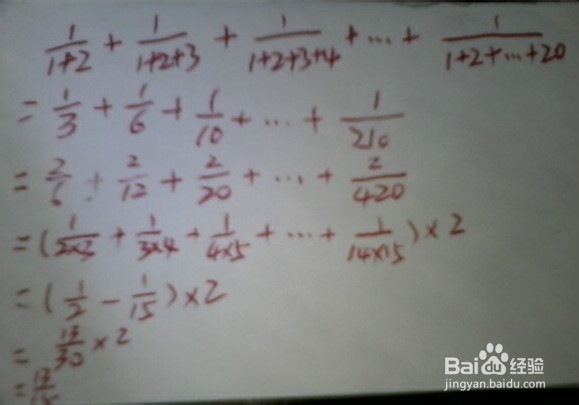 1/(1+2) + 1/(1+2+3) + 1/(1+2+3+4) + ... + 1/(1+2+...+20)
= 1/3 + 1/6 + 1/10 + ... + 1/210
= 2/6 + 2/12 + 2/20 + ... + 2/420
= (1/(2×3) + 1/(3×4) + 1/(4×5) + ... + 1/(14×15)) × 2
= (1/2 - 1/15) × 2
= 13/30 × 2
= 13/15
Baidu 经验
jingyan.baidu.com